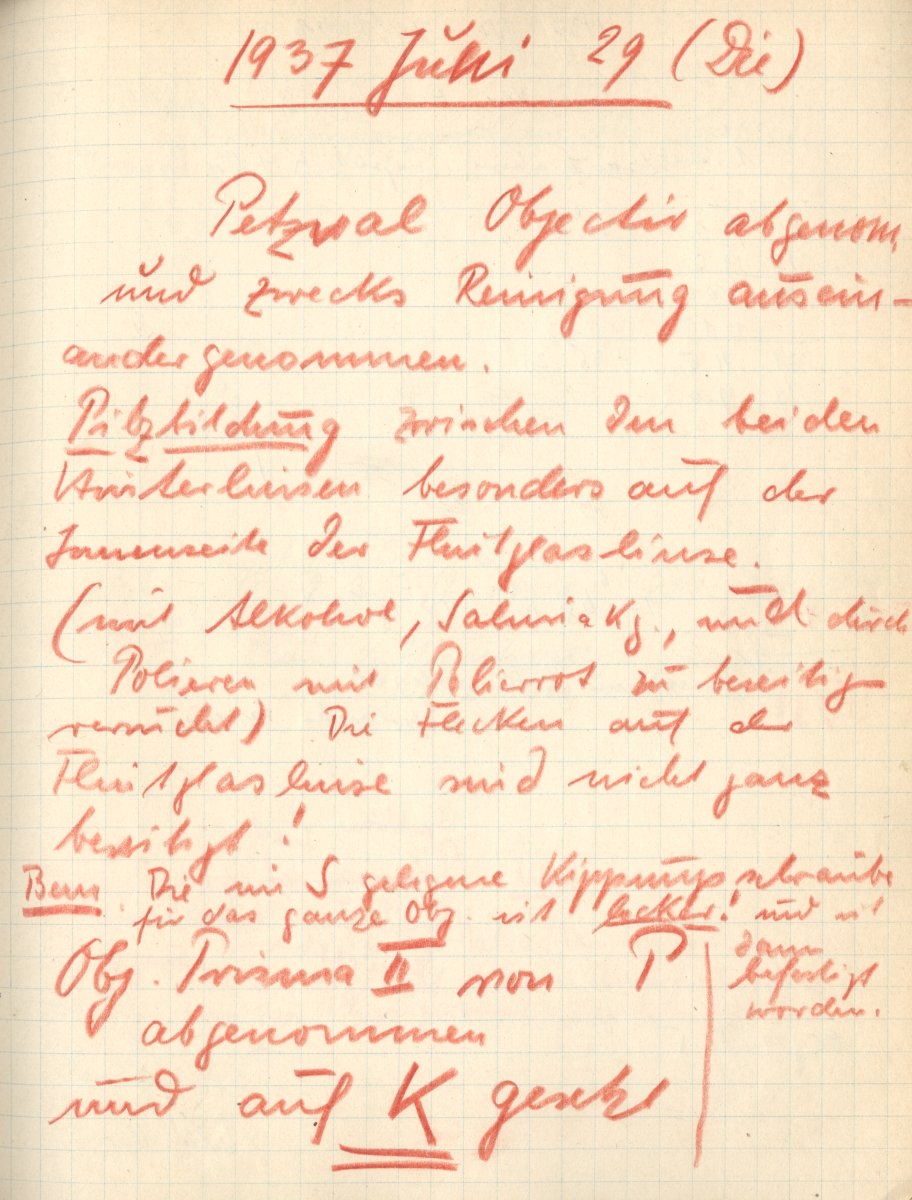 1937 Juni 29 (Die)
Petzval Objectiv abgenom
und zwecks Reinigung ausein-
andergenommen.
Pilzbildung zwischen den beiden
Hinterlinsen besonders auf der
Innenseite der Flintglaslinse.
(mit Alkohol, Salmiakg., und durch
Polieren mit Polierrot zu beseitig
versucht) Die Flecken auf der
Flintglaslinse sind nicht ganz
beseitigt!
Bem Die im S gelegene Kippungsschraube
für das ganze Obj. ist locker! und ist
dann
befestigt
worden.
Obj. Prisma II von P
abgenommen
und auf K gesetzt